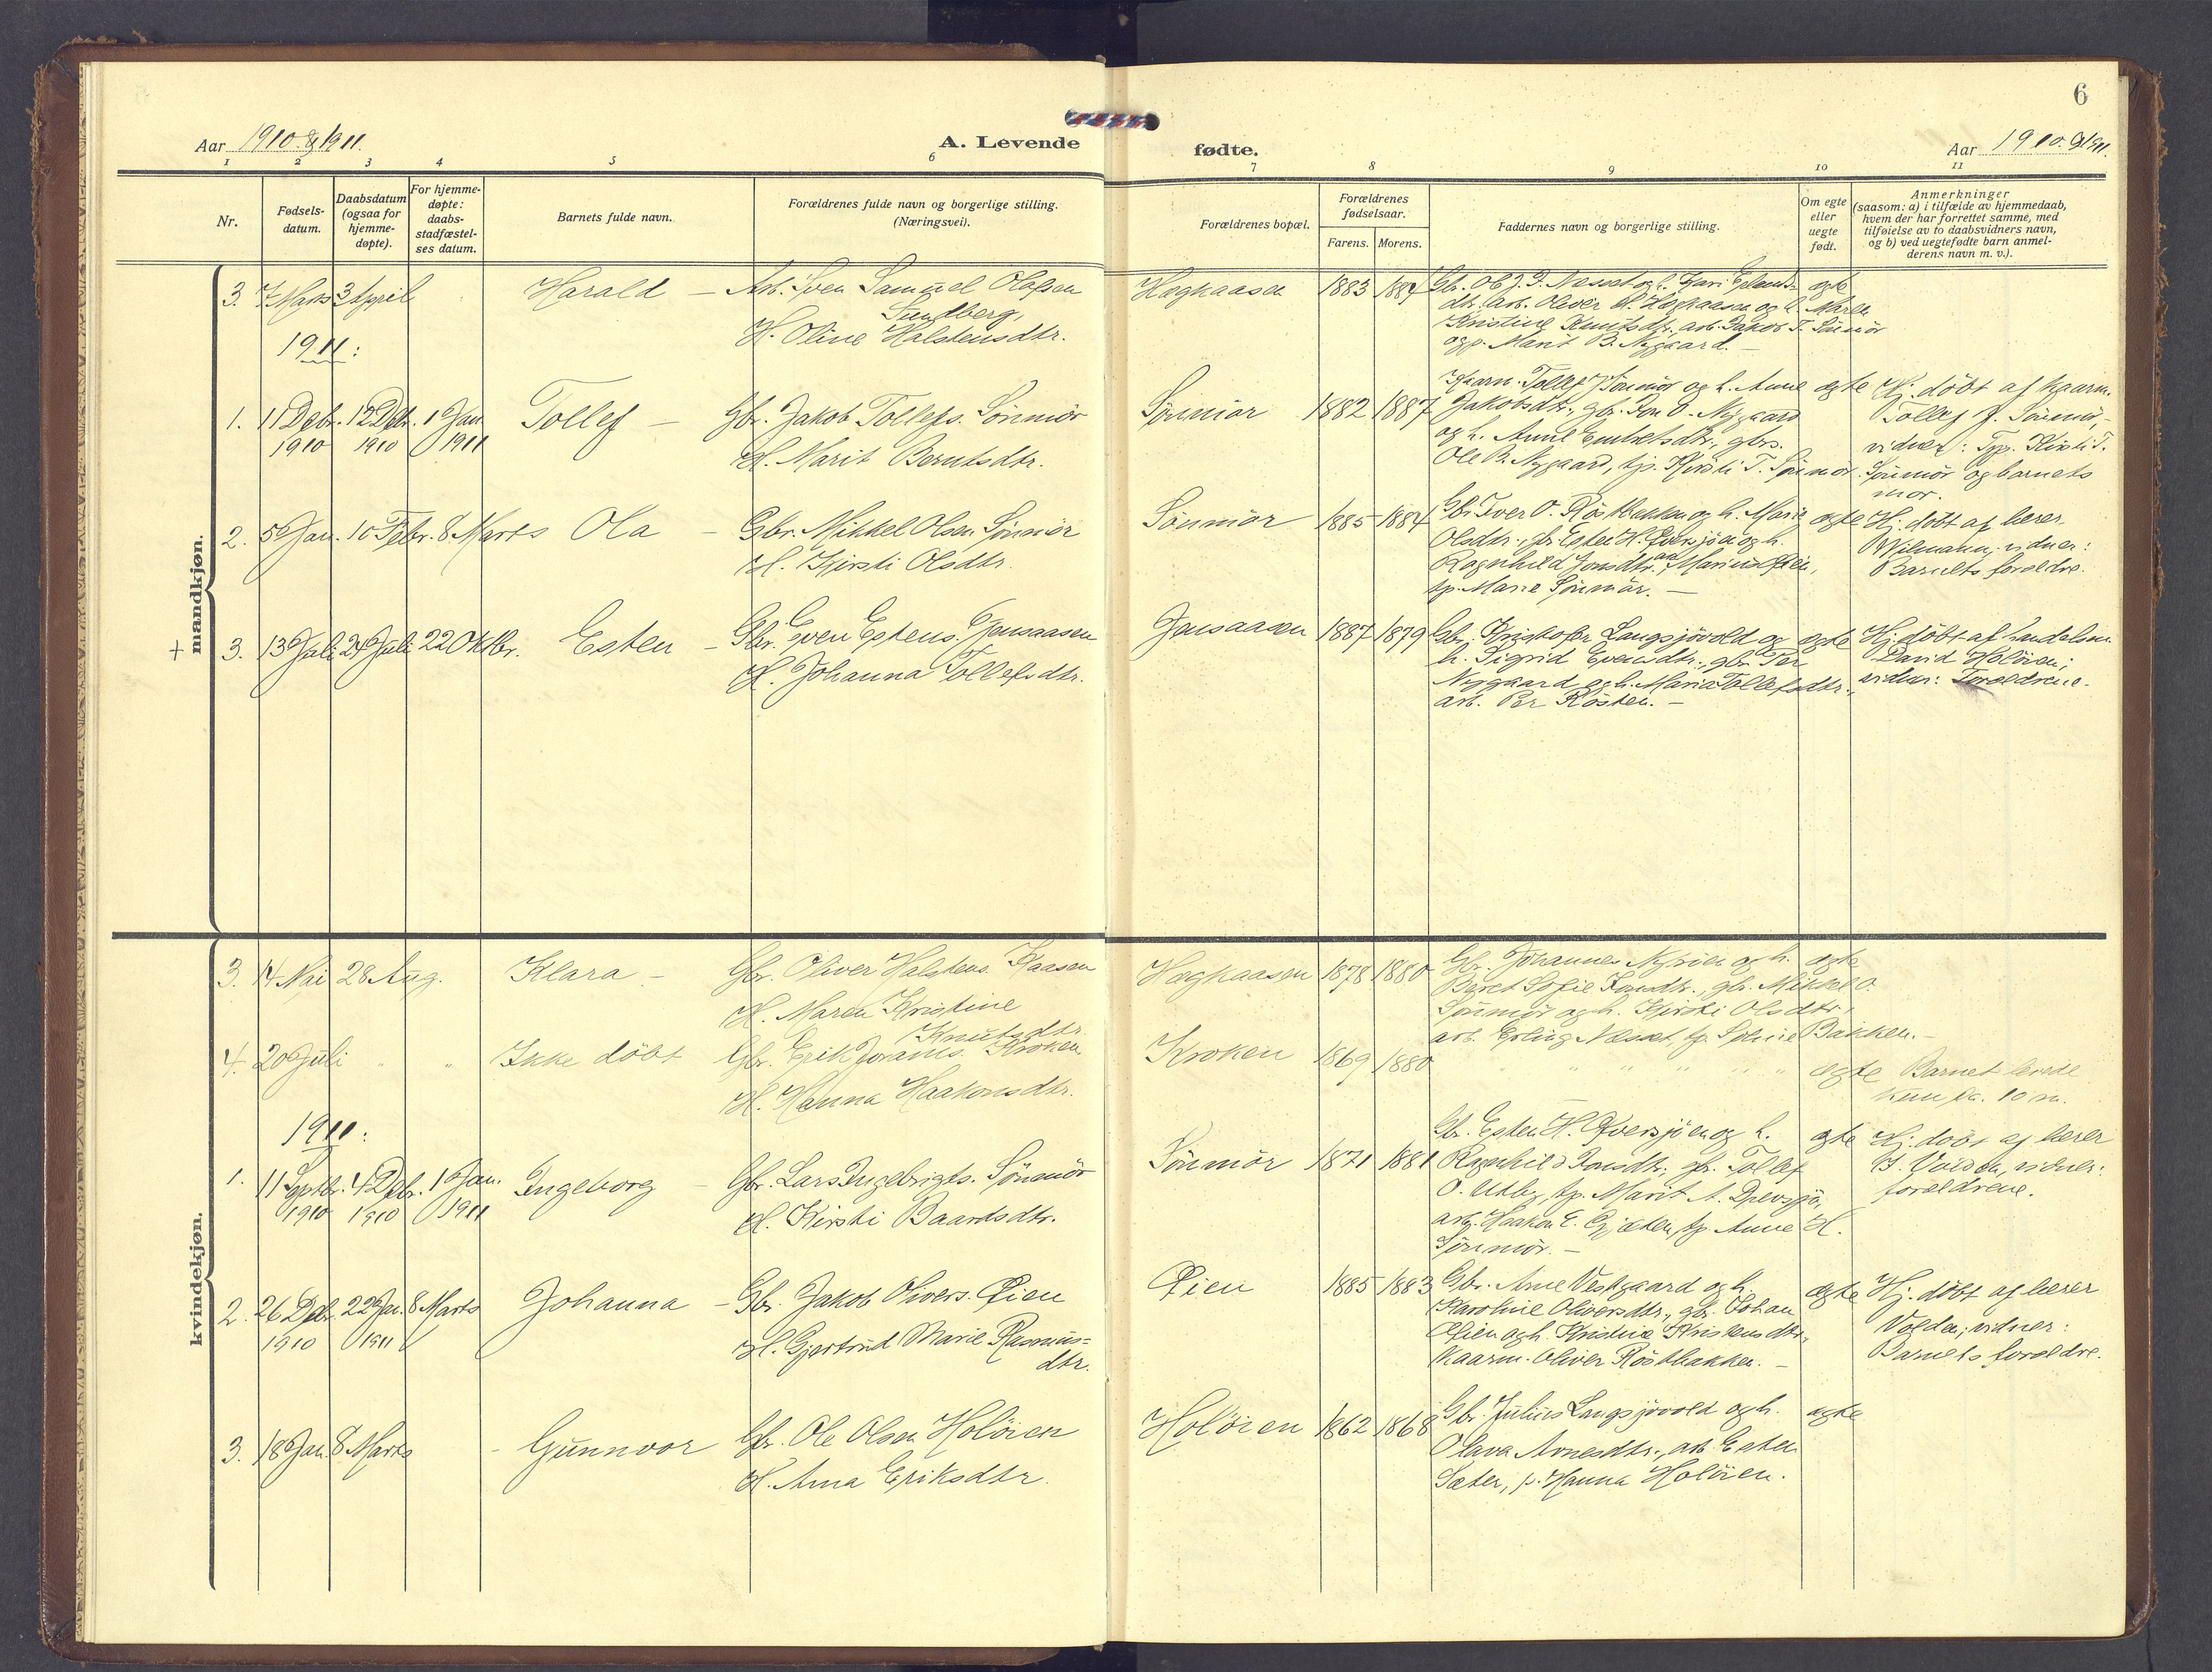 6
Aar 1910 & 1911.
A. Levende
fødte.
Aar 1910. & 1911.
1 2 3 4 5 6 7 8 9 10 11
Nr.
Fødsels-
datum.
Daabsdatum
(ogsaa for
hjemme-
døpte).
For hjemme-
døpte:
daabs-
stadfæstel-
ses datum.
Barnets fulde navn.
Forældrenes fulde navn og borgerlige stilling.
(Næringsvei).
Forældrenes bopæl.
Forældrenes
fødselsaar.
Farens. Morens.
Faddernes navn og borgerlige stilling.
Om egte
eller
uegte
født.
Anmerkninger
(saasom: a) i tilfælde av hjemmedaab,
hvem der har forrettet samme, med
tilføielse av to daabsvidners navn,
og b) ved uegtefødte barn anmel-
derens navn m. v.).
mandkjøn.
3. 7 Mars 3 April Harald – Arb. Sven Samuel Olafsen
Sundberg,
H. Oline Halstensdtr.
Høgkaasen 1883
egte
Kristine Knutsdtr., arb. Jakob T. Sönmör
og p. Marit B. Nygaard. –
1911:
1. 11 Debr. 12 Debr. 1 Jan.
1910 1910 1911
Tollef –
Gbr. Jakob Tollefs. Sönmör
H. Marit Berntsdtr.
Sönmör 1882 1887
Kaarm. Tollef J. Sönmör og h. Anne
Jakobsdtr., gb. Jon O. Nygaard
og h. Anne Embretsdtr., gbrs.
Ole B. Nygaard, tp. Kirsti T. Sönmör.
egte
Hj. döbt af kaarm.
Tollef J. Sönmör,
vidner: Tp. Kirsti T.
Sönmör og barnets
mor.
2. 5 Jan. 10 Febr. 8. Marts Ola – Gbr. Mikkel Olsen Sönmör
H. Kirsti Olsdtr.
Sönmör 1885 1884
Gbr. Iver O. Röstbakken og h. Marie
Olsdtr., gb. Esten H. Översjöen og h.
Ragnhild Jonsdtr., arb. Marius Öien,
tp. Marie Sönmör. –
egte
Hj. döbt af lærer
Wilmann, vidner:
Barnets foreldre.
+
3. 13 Juli 24 Juli 22 Oktbr. Esten – Gbr. Even Estens. Jensaasen
H. Johanna Tollefsdtr.
Jensaasen 1887 1879
Gbr. Kristofer Langsjövold og
h. Sigrid Evensdtr., gbr. Per
Nygaard og h. Maria Tollefsdtr.,
arb. Per Rösten. –
egte
Hj. döbt af handelsm.
David Holöien;
vidner: Foreldrene.
kvindekjøn.
3. 14 Mai 28 Aug. Klara – Gbr. Oliver Halstens. Kaasen
H. Maren Kristine
Knutsdtr.
Høgkaasen 1878 1880
Gbr. Johannes Nyröen og h.
Beret Sofie Jonsdtr., gb. Mikkel O.
Sönmör og h. Kirsti Olsdtr.,
arb. Erling Næsset, tp. Bakken. –
egte
4. 20 Juli " " Ikke döbt Gbr. Erik Kroken.
H. Hanna Haakonsdtr.
Kroken 1869 1880 " " " " " "
egte
Barnet levede
kun ca. 10 m.
1911:
1. 11 Septbr. 4 Debr. 1 Jan.
1910 1910 1911
Ingeborg –
Gbr. Lars Ingebrigts. Sönmör
H. Kirsti Baardsdtr.
Sönmör 1871 1881
Gb. Esten H. Översjöen og h.
Ragnhild Jonsdtr., gb. Tollef
O. Utby, tp. Marit A.
arb. Haakon E. Gjæten, tp. Anne H.
Sönmör. –
egte
Hj. döbt af lærer
Volden, vidner:
foreldrene.
2. 26 Debr. 22 Jan. 8 Marts
1910 1911
Johanna –
Gbr. Jakob Olivers. Öien
H. Gjertrud Marie Rasmus-
dtr.
Öien 1885 1883
Gbr. Arne Vestgaard og h.
Karoline Oliversdtr., gb. Johan
Öien og h. Kristine Kristensdtr.,
Kaarm. Oliver Röstbakken. –
egte
Hj. döbt af lærer
Volden; vidner:
Barnets foreldre.
3. 18 Jan. 8 Marts – Gunnvor Gbr. Ole Olsen Holöien
H. Anna Eriksdtr.
Holöien 1862 1868
Gbr. Julius Langsjövold og h.
Olava Arnesdtr., arb. Esten
Sæter, p. Hanna Holöien.
egte